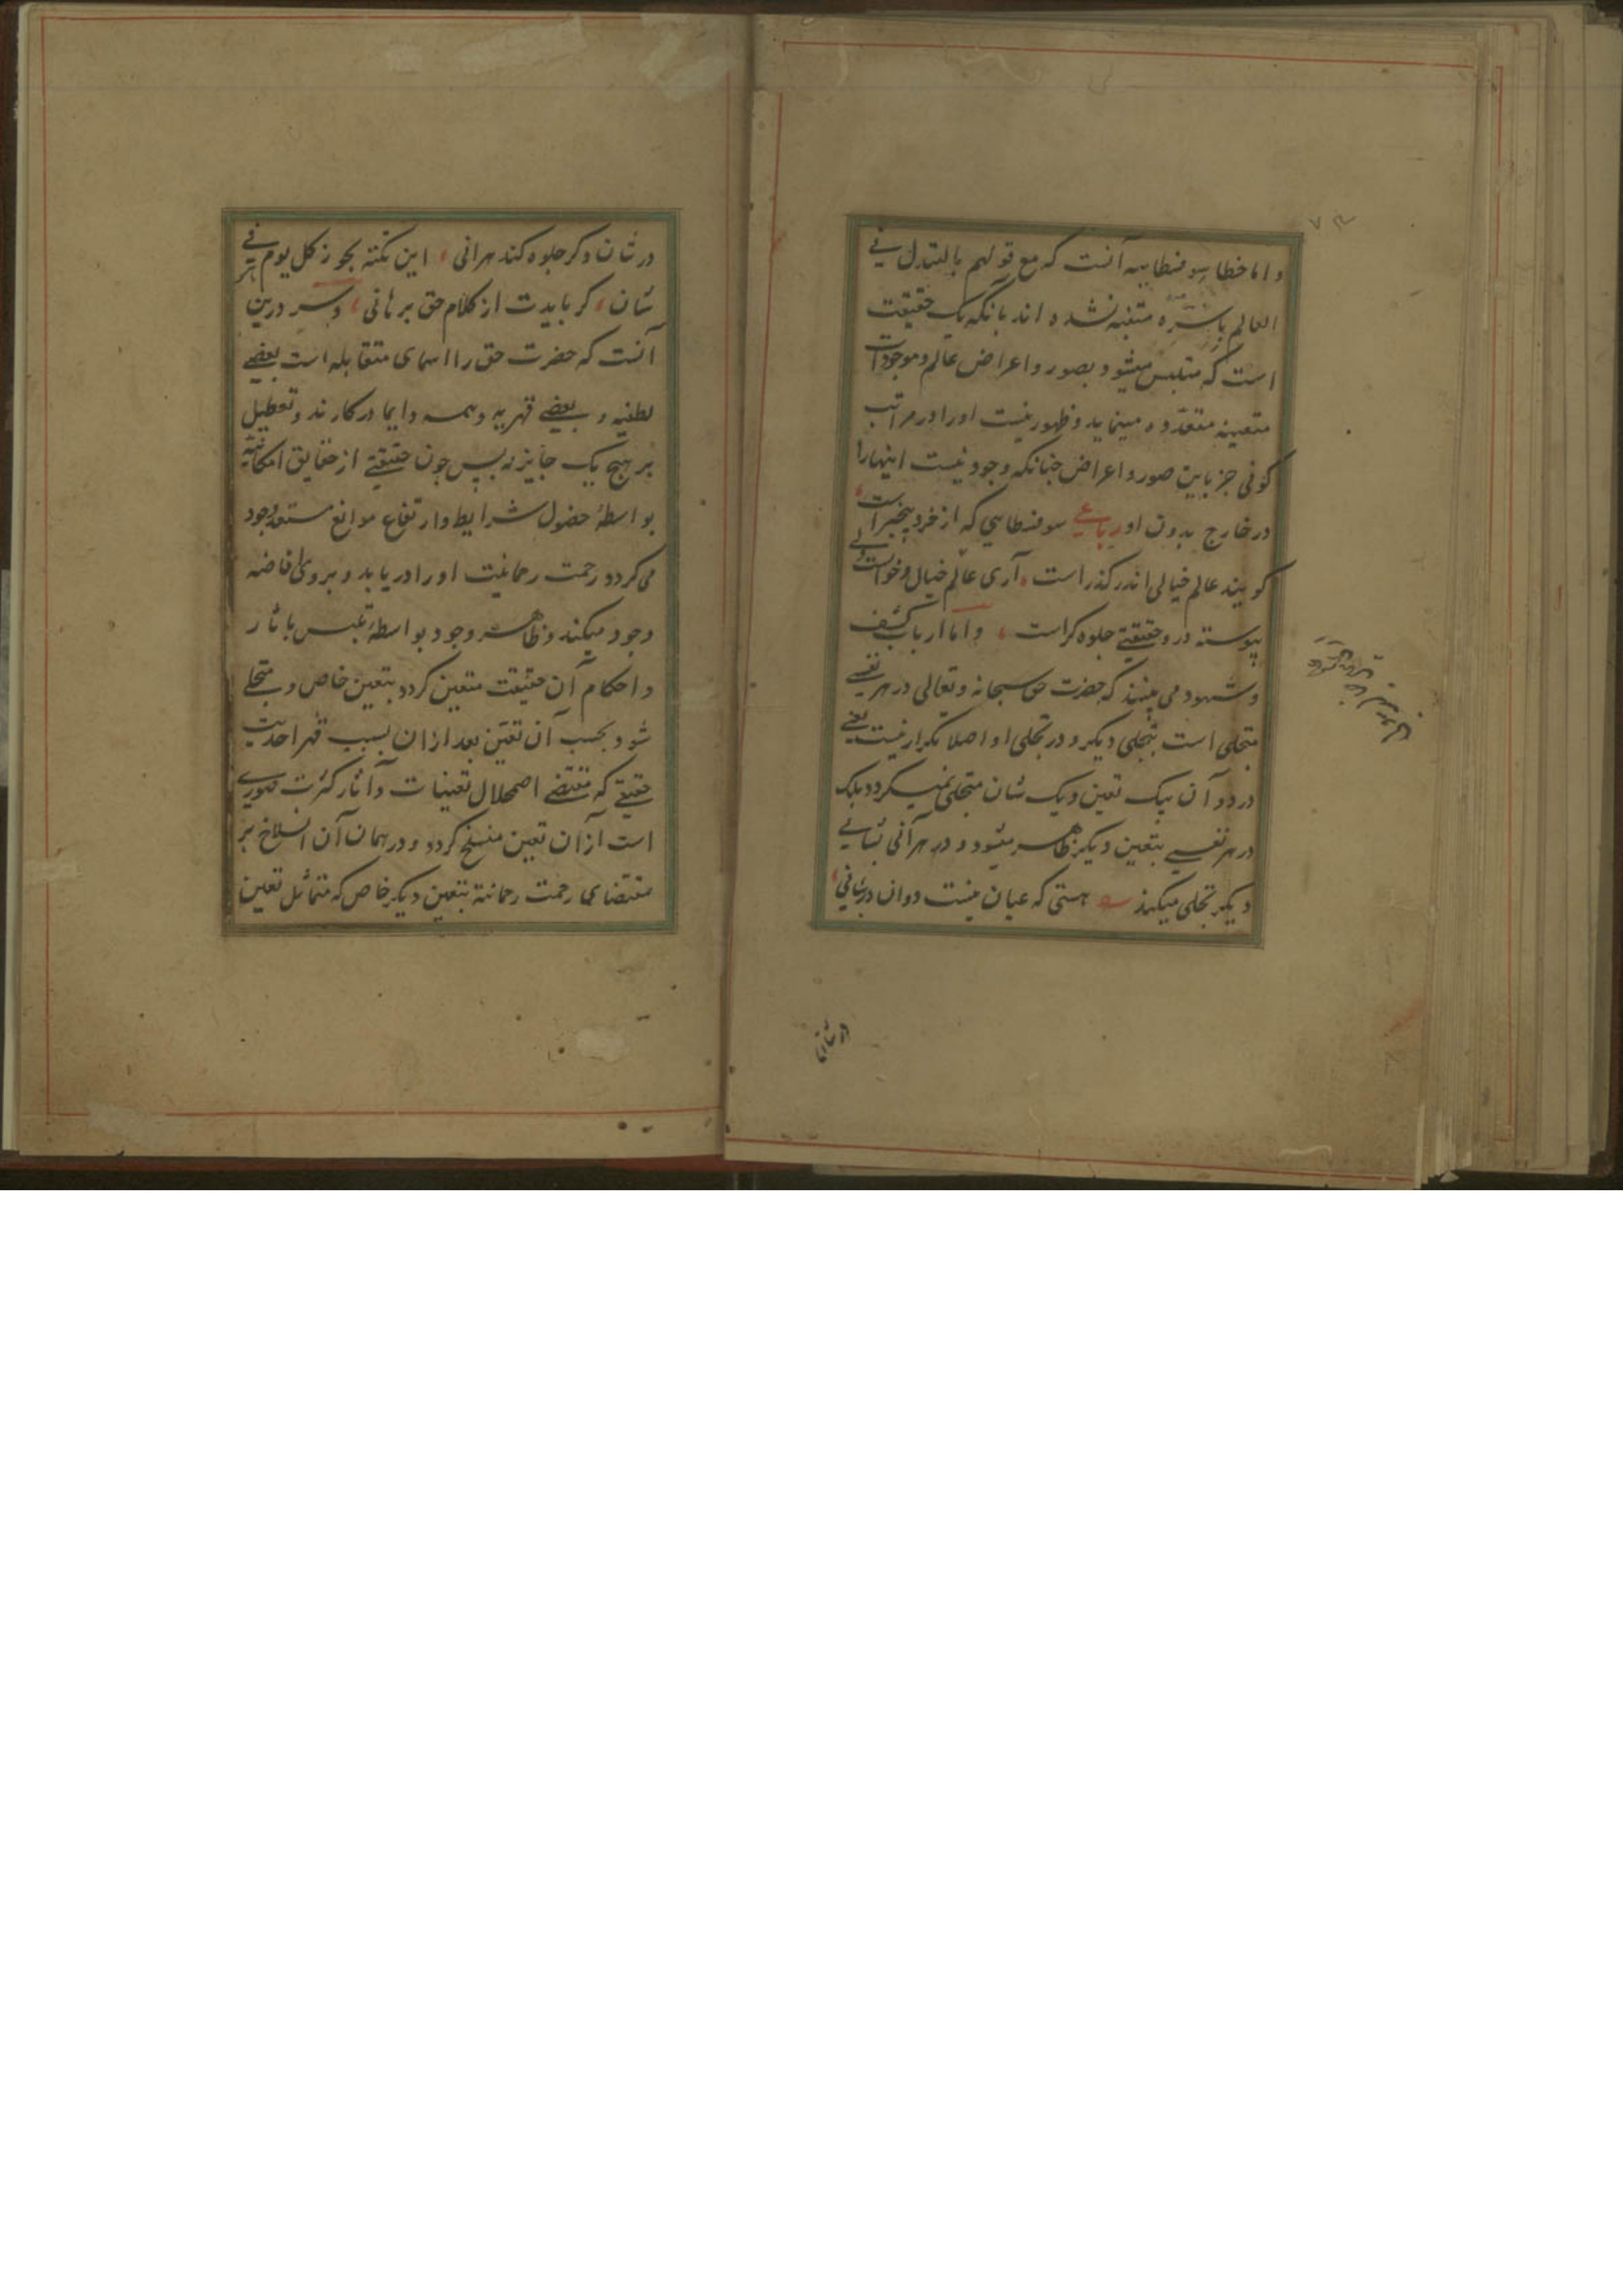 و اما خطا سوفسطاییه آنست که مع قولهم بالتبدل فی
العالم باسره متنبه نشده اند بانکه یک حقیقت
است که متلبس میشود بصور و اعراض عالم و موجودات
متعینه متعدده مینماید و ظهور نیست او را در مراتب
کونی جز باین صور و اعراض چنانکه وجود نیست اینها را
در خارج بدون او رباعی سوفسطایی که از خرد بیخبر است
کویند عالم خیالی اندر کذر است آری عالم خیال و خوابست ولی
پیوسته درو حقیقتی جلوه کر است و اما ارباب کشف
و شهود می بینند که حضرت حق سبحانه و تعالی در هر نفسی
متجلی است بتجلی دیکر و در تجلی او اصلا تکرار نیست یعنی
در دو آن بیک تعین و یک شان متجلی نمیکردد بلکه
در هر نفسی بتعین دیکر ظاهر میشود و در هر آنی بشانی
دیکر تجلی میکند هستی که عیان نیست دوان در شانی
در شانی
در شان دکر جلوه کند هر آنی این نکته بجو ز کل یوم فی
شان کر بایدت از کلام حق برهانی و سر درین
آنست که حضرت حق را اسمای متقابله است بعضی
لطفیه و بعضی قهریه و همه دایما در کارند و تعطیل
بر هیچ یک جایز نه پس چون حقیقتی از حقایق امکانیه
بواسطهٔ حصول شرایط و ارتفاع موانع مستعد وجود
می کردد رحمت رحمانیت او را در یابد و بر وی افاضه
وجود میکند و ظاهر وجود بواسطهٔ تلبس باثار
و احکام آن حقیقت متعین کردد بتعین خاص و متجلی
شود بحسب آن تعین بعد ازان بسبب قهر احدیت
حقیقی که مقتضی اضمحلال تعینات و آثار کثرت صوری
است ازان تعین منسلخ کردد و در همان آن انسلاخ بر
مقتضای رحمت رحمانیة بتعین دیکر خاص که متماثل تعین